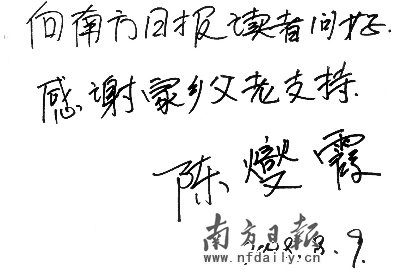 向南方日报读者问好.
感谢家乡父老支持.
陈燮霞
南方日报
www.nfdaily.cn
8.9.